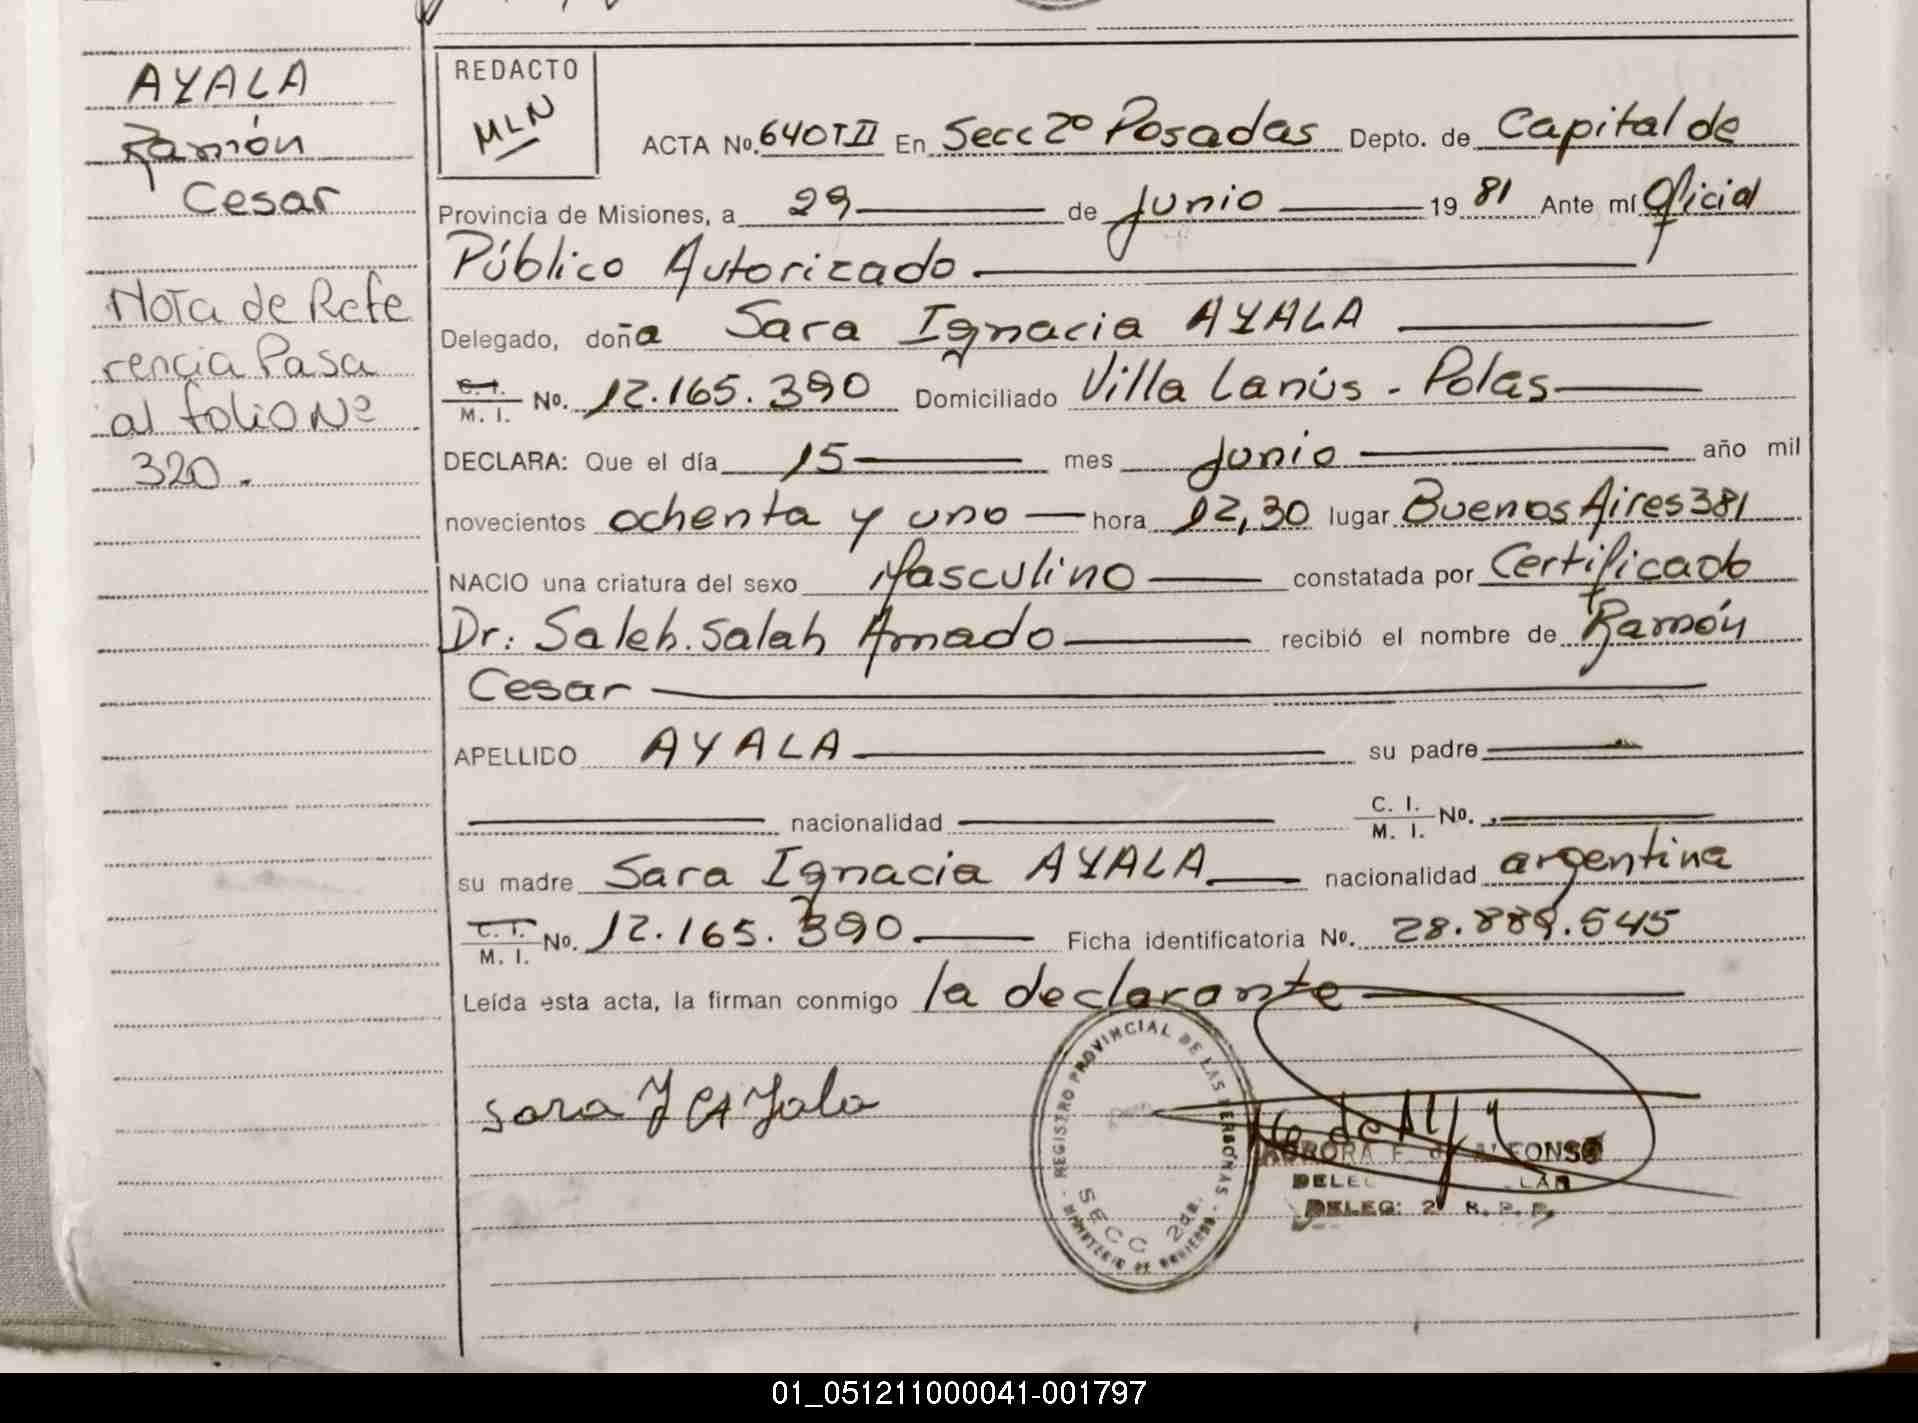 AYALA
Ramón
Cesar
Nota de Refe
rencia Pasa
al folio Nº
320.
REDACTO
MLN
ACTA Nº. 640 T II En Secc 2º Posadas Depto. de Capital de
Provincia de Misiones, a 29 de Junio 19 81 Ante mí Oficial
Público Autorizado
Delegado, doña Sara Ignacia AYALA
C. I. / M. I. Nº. 12.165.390 Domiciliado Villa Lanús - Polas
DECLARA: Que el día 15 mes Junio año mil
novecientos ochenta y uno hora 12,30 lugar Buenos Aires 381
NACIO una criatura del sexo Masculino constatada por Certificado
Dr: Saleh. Salah Amado recibió el nombre de Ramón
Cesar
APELLIDO AYALA su padre
nacionalidad C. I. / M. I. Nº.
su madre Sara Ignacia AYALA nacionalidad argentina
C. I. / M. I. Nº. 12.165.390 Ficha identificatoria Nº. 28.889.545
Leída esta acta, la firman conmigo la declarante
Sara I Ayala
REGISTRO PROVINCIAL DE LAS PERSONAS
SECC 2da.
MINISTERIO DE GOBIERNO
AURORA F. de ALFONSO
DELEG: 2ª R. P. P.
01_051211000041-001797